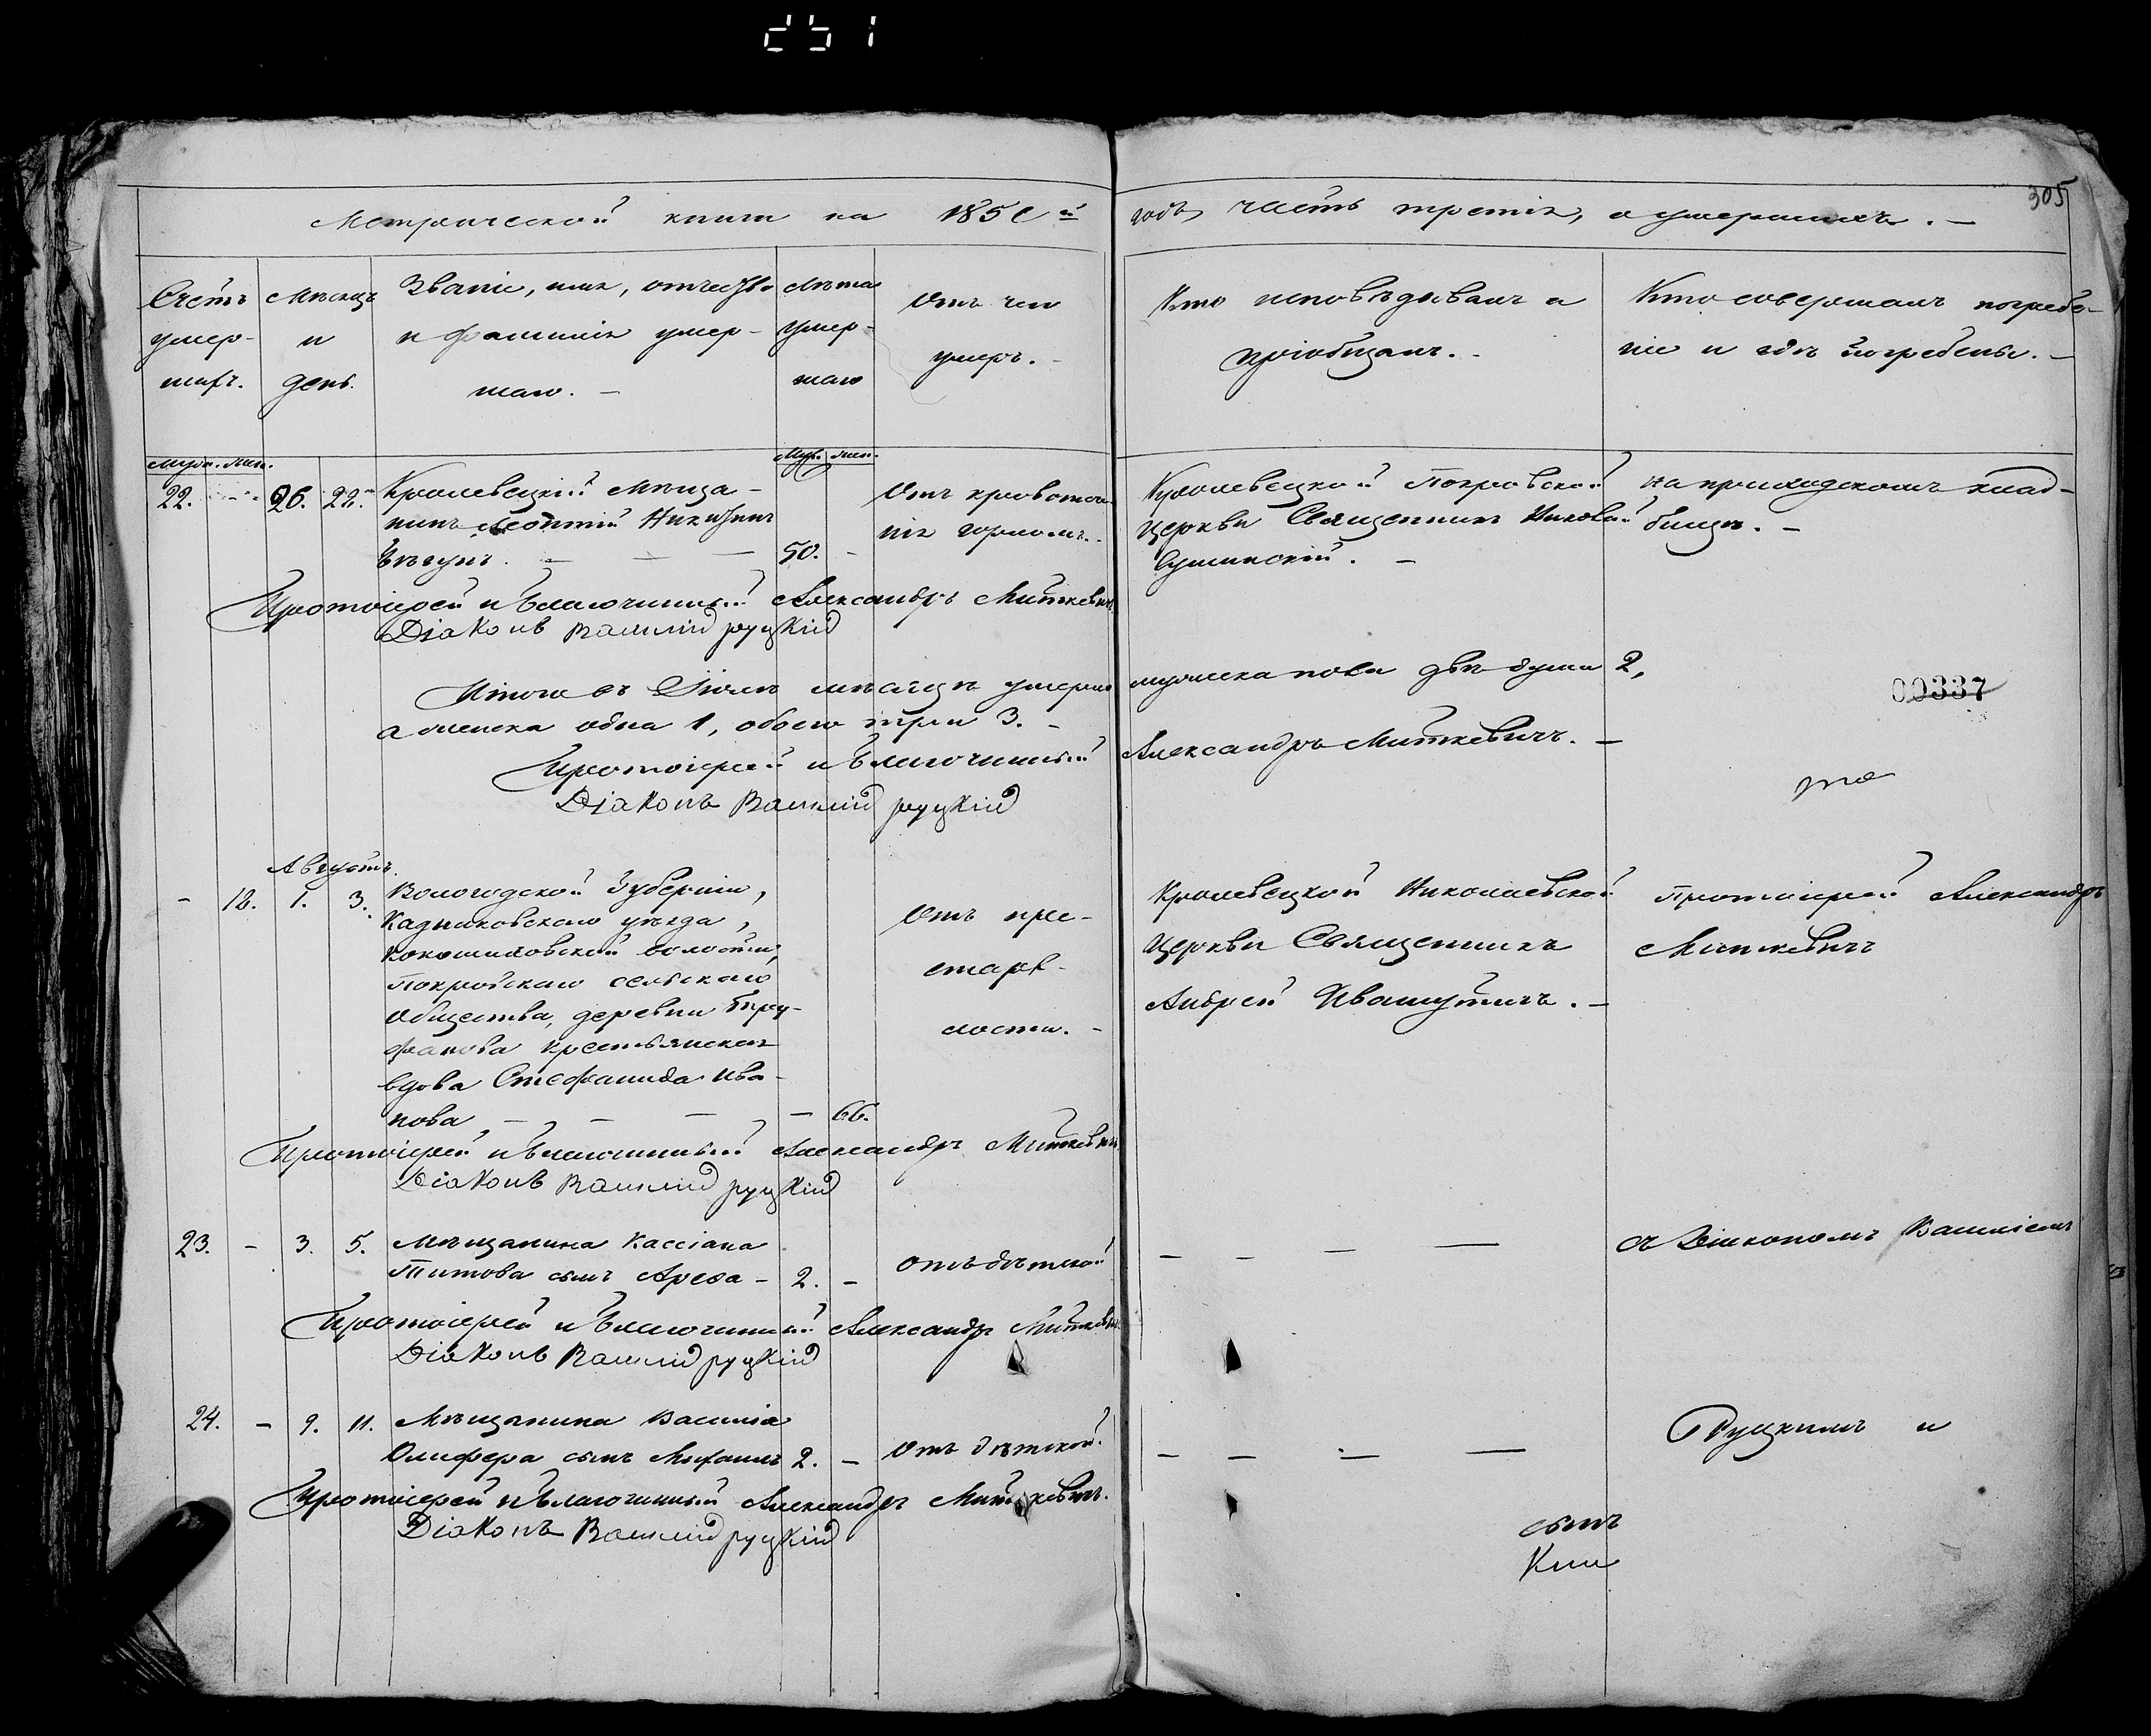 251
305
Метрической книги на 185 й годъ, часть третія, о умершихъ. —
Счетъ умер-шихъ.
Мѣсяцъ и день.
Званіе, имя, отчество и фамилія умер-шаго. —
Лѣта умер-шаго
Отъ чего умеръ. —
Кто исповѣдывалъ и пріобщалъ. —
Кто совершалъ погребе-ніе и гдѣ погребены. —
Муж. жен.
Муж. жен.
22. - 26. 28. Кролевецкій мѣща-
нинъ Леонтій Никитинъ
50. —
Отъ кровотече-
нія горломъ. -
Кролевецкой Покровской
церкви Священникъ Николай
на приходскомъ клад-
бищѣ. —
Протоіерей и Благочинный Александръ Миткевичъ
Діаконъ Василій Руцкій
Итого въ Іюлѣ мѣсяцѣ умерло мужеска пола двѣ души 2,
а женска одна 1, обоего три 3. —
Протоіерей и Благочинный Александръ Миткевичъ. —
Діаконъ Василій Руцкій
00337
Августъ.
- 12. 1. 3. Вологодской Губерніи,
Кадниковскаго уѣзда,
волости,
Покровскаго сельскаго
общества, деревни Тру-
фанова крестьянская
вдова Стефанида Ива-
нова — — — — 66.
Отъ пре-
старѣ-
лости. -
Кролевецкой Николаевской
церкви Священникъ
Андрей Ивашутичъ. —
Протоіерей Александръ
Миткевичъ
Протоіерей и Благочинный Александръ Миткевичъ
Діаконъ Василій Руцкій
23. - 3. 5. Мѣщанина Кассіана
Титова сынъ Арефа - 2. - Отъ дѣтской — — — —
съ Діакономъ Василіемъ
Протоіерей и Благочинный Александръ Миткевичъ
Діаконъ Василій Руцкій
24. - 9. 11. Мѣщанина Василія
Олифера сынъ Михаилъ 2. - Отъ дѣтской. — — — —
Руцкимъ и
Протоіерей и Благочинный Александръ Миткевичъ.
Діаконъ Василій Руцкій